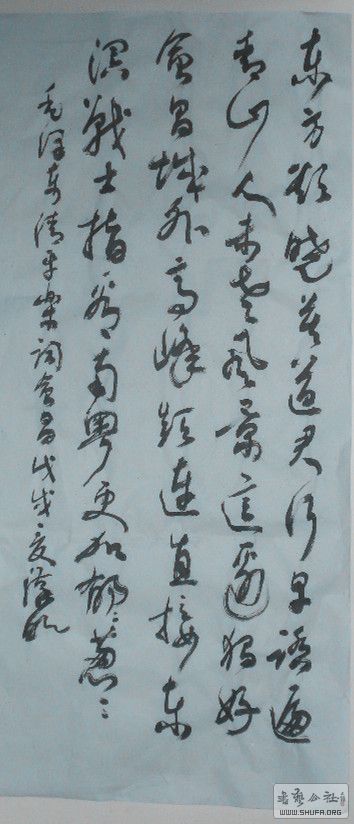 东方欲晓莫道君行早踏遍
青山人未老风景这边独好
会昌城外高峰颠连直接东
溟战士指看南粤更加郁々葱々
毛泽东清平乐词会昌戊戌之夏
WWW.SHUFA.ORG